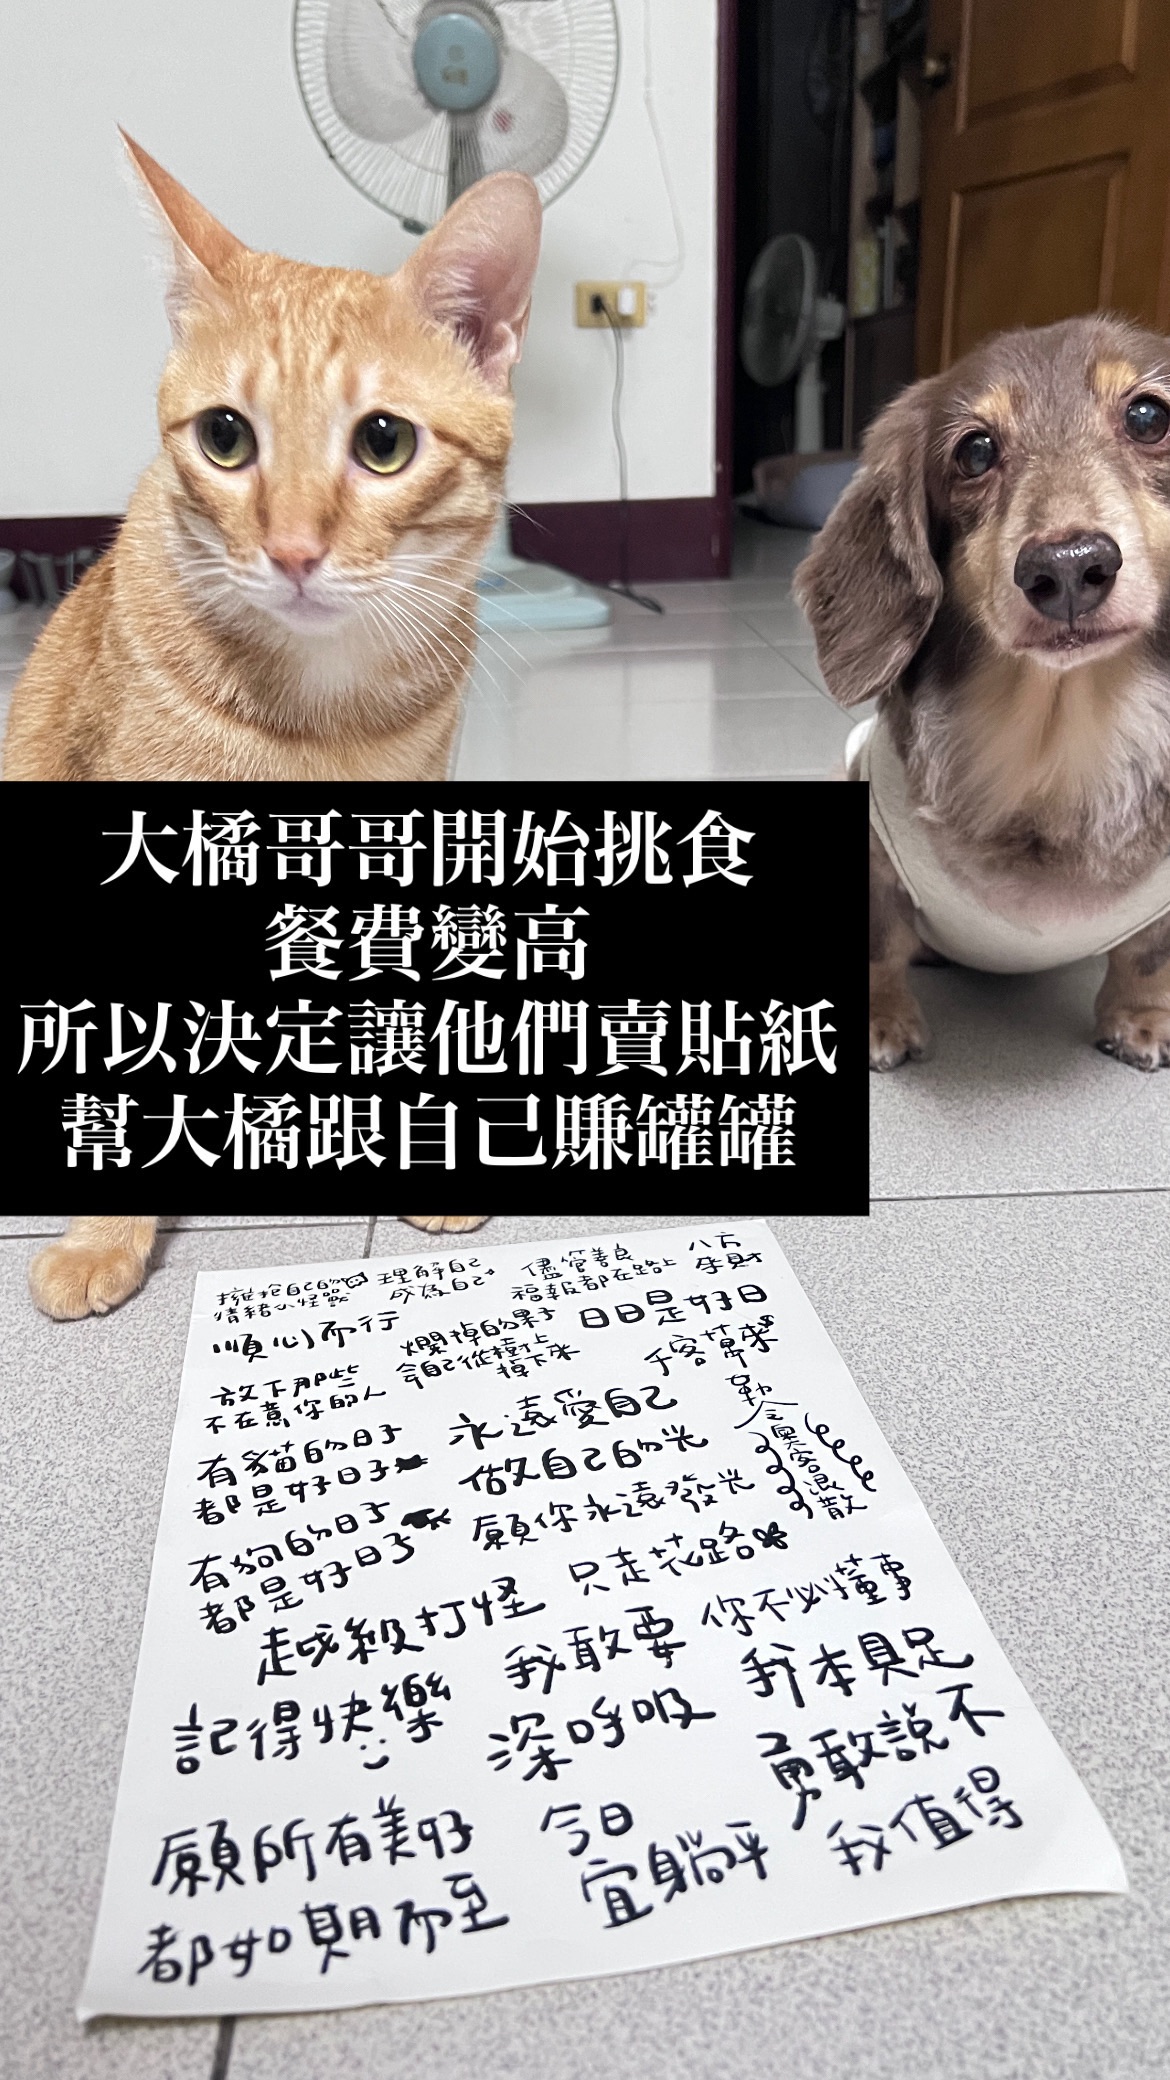 大橘哥哥開始挑食
餐費變高
所以決定讓他們賣貼紙
幫大橘跟自己賺罐罐
擁抱自己的
情緒小怪獸
理解自己
成為自己
儘管善良
福報都在路上
八方
來財
順心而行
爛掉的果子
會自己從樹上
掉下來
日日是好日
千客萬來
放下那些
不在意你的人
永遠愛自己
勒令奧客退散
有貓的日子
都是好日子
做自己的光
有狗的日子
都是好日子
願你永遠發光
只走花路
越級打怪
我敢要
你不必懂事
記得快樂
深呼吸
我本具足
勇敢說不
願所有美好
都如期而至
今日
宜躺平
我值得